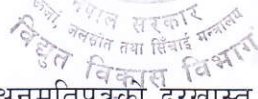 नेपाल सरकार
ऊर्जा, जलस्रोत तथा सिंचाई मन्त्रालय
विद्युत विकास विभाग
अनुमतिपत्रको दरखास्त